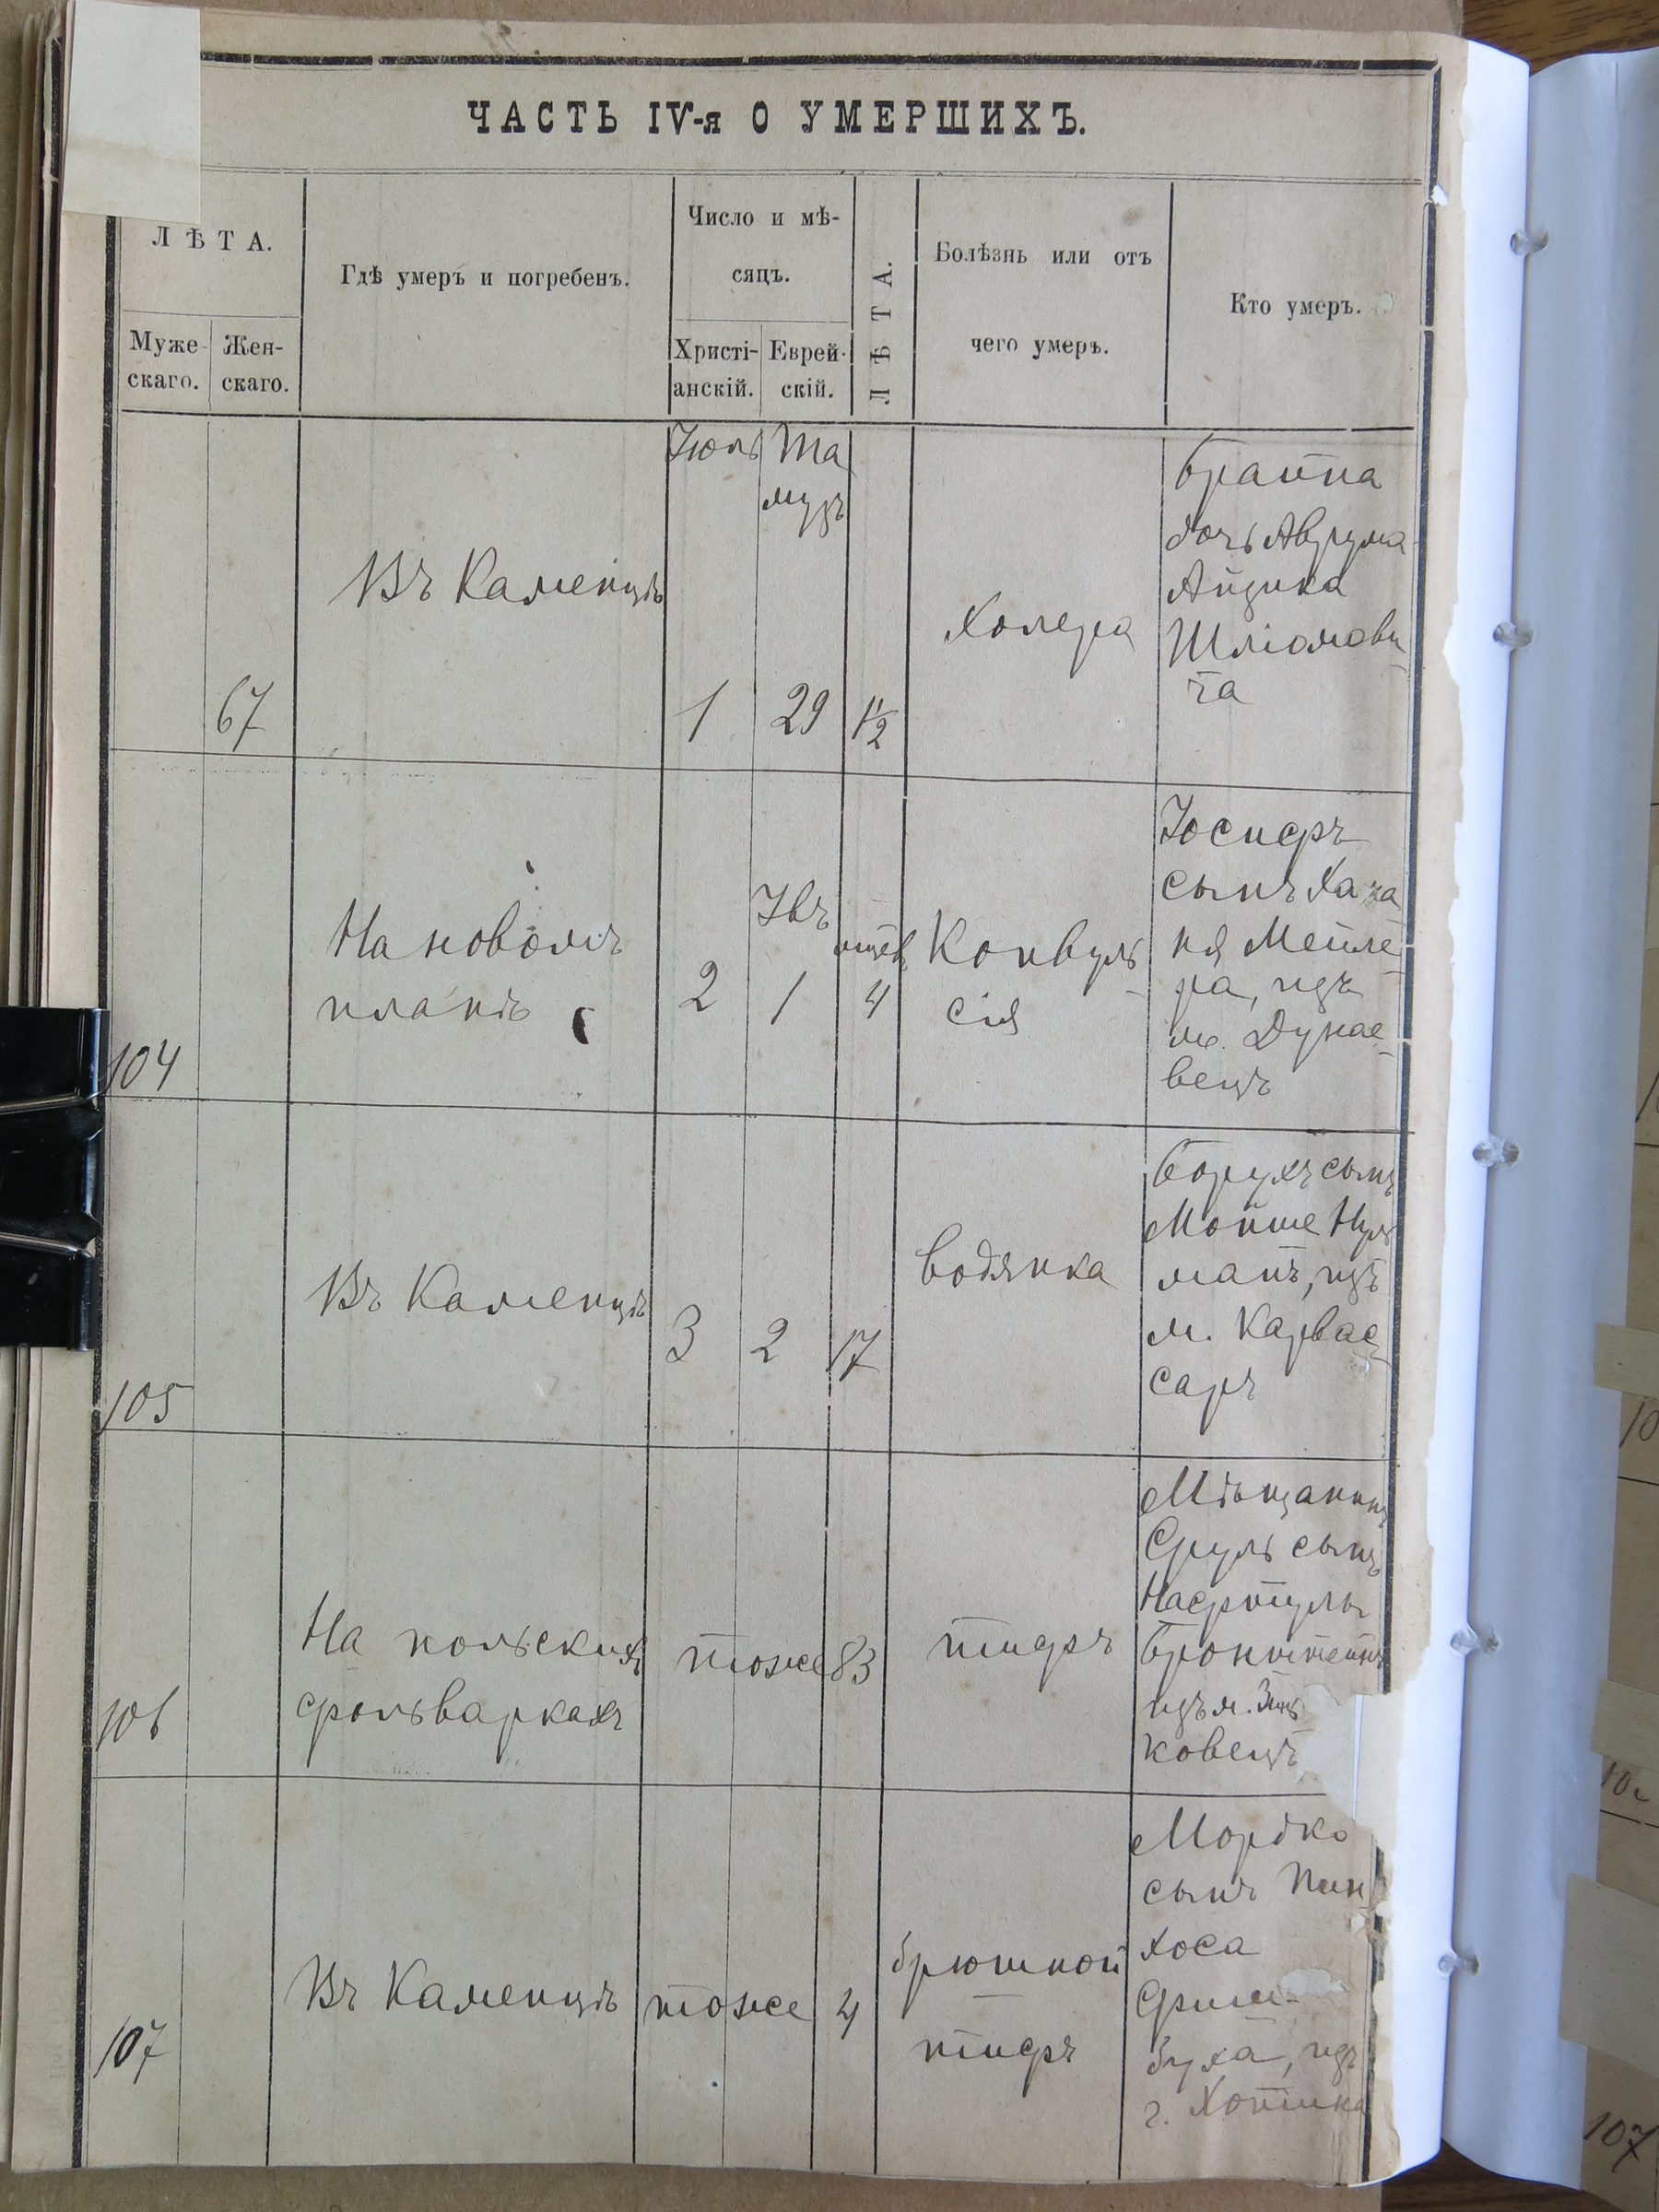 ЧАСТЬ IV-я О УМЕРШИХЪ.
ЛѢТА.
Муже-
скаго.
Жен-
скаго.
Гдѣ умеръ и погребенъ.
Число и мѣ-
сяцъ.
Христі-
анскій.
Еврей-
скій.
ЛѢТА.
Болѣзнь или отъ
чего умеръ.
Кто умеръ.
Іюль
Та
музъ
67
Въ Каменцѣ
1
29
1½
Холера
Брайна
дочь Аврума-
Айзика
Шліомови
ча
104
На новомъ
планѣ
2
Івъ
1
4
Конвуль-
сія
Іосифъ
сынъ Хаза-
изъ
м. Дунае-
вецъ
105
Въ Каменцѣ
3
2
17
Водянка
Борухъ сынъ
Мойше
изъ
м. Карвас-
саръ
106
На польскихъ
фольваркахъ
тоже
83
тифъ
Мѣщанинъ
Сруль сынъ
Нафтулы
Бронштейнъ
изъ м. Зинь
ковецъ
107
Въ Каменцѣ
тоже
4
брюшной
тифъ
Мордко
сынъ Пин
хоса
изъ
г. Хотина
107